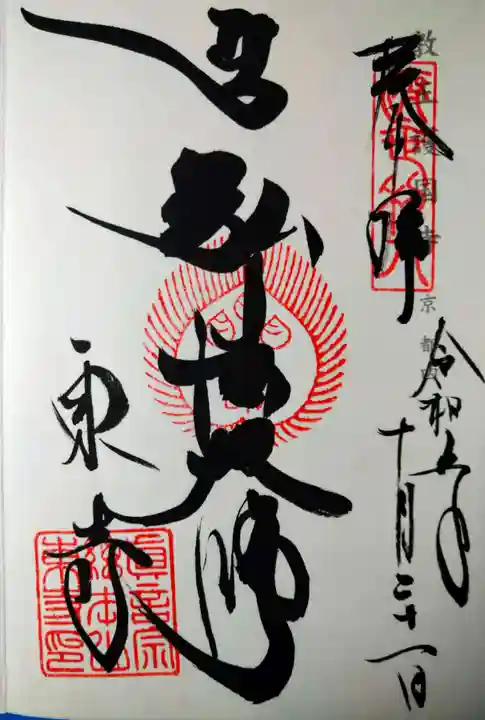 奉拝
教王護国寺
京都
令和五年
十月二十一日
弘法大師
東寺